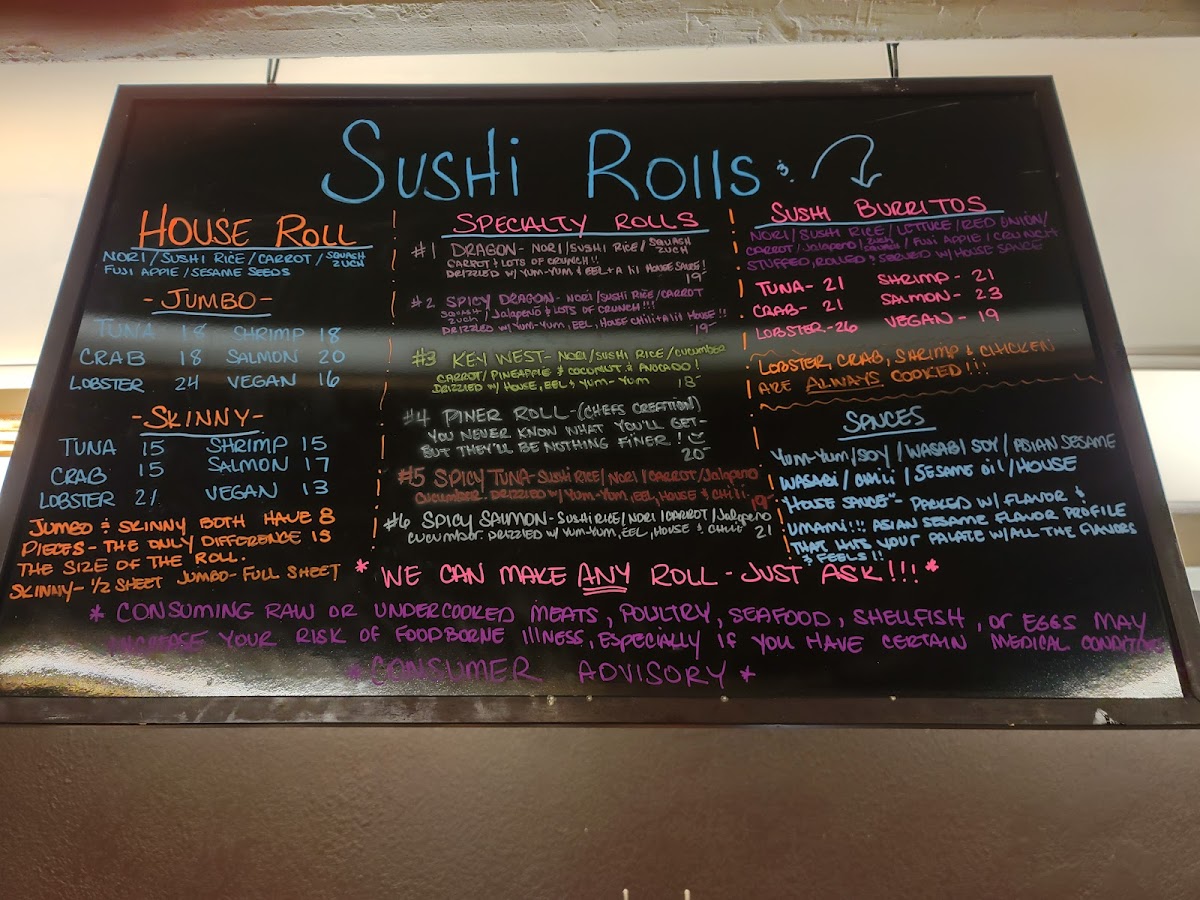 Sushi Rolls &
HOUSE ROLL
NORI/SUSHI RICE/CARROT/SQUASH ZUCH
FUJI APPIE/SESAME SEEDS
-JUMBO-
TUNA 18 SHRIMP 18
CRAB 18 SALMON 20
LOBSTER 24 VEGAN 16
-SKINNY-
TUNA 15 SHRIMP 15
CRAB 15 SALMON 17
LOBSTER 21 VEGAN 13
JUMBO & SKINNY BOTH HAVE 8
PIECES-THE ONLY DIFFERENCE IS
THE SIZE OF THE ROLL.
SKINNY-1/2 SHEET JUMBO-FULL SHEET
SPECIALTY ROLLS
#1 DRAGON-NORI/SUSHI RICE/SQUASH ZUCH
CARROT & LOTS OF CRUNCH!!
DRIZZLED W/ YUM-YUM & EEL+A lil HOUSE SAUCE!
19-
#2 SPICY DRAGON-NORI/SUSHI RICE/CARROT
SQUASH ZUCH/Jalapeño & LOTS OF CRUNCH!!!
DRIZZLED W/YUM-YUM, EEL, HOUSE CHILI+A lit HOUSE!!
19-
#3 KEY WEST-NORI/SUSHI RICE/CUCUMBER
CARROT/PINEAPPLE & COCONUT & AVOCADO!
DRIZZLED W/ HOUSE, EEL & YUM-YUM 18-
#4 PINER ROLL-(CHEFS CREATION)
YOU NEVER KNOW WHAT YOU'LL GET-
BUT THEY'LL BE NOTHING FINER!
20-
#5 SPICY TUNA-SUSHI RICE/NORI/CARROT/Jalapeno
CUCUMBER. DRIZZLED W/YUM-YUM, EEL, HOUSE & CHILI.
19-
#6 SPICY SALMON-SUSHI RICE/NORI/CARROT/Jalapeno
CUCUMBER. DRIZZLED W/ YUM-YUM, EEL, HOUSE & CHILI 21
SUSHI BURRITOS
NORI/SUSHI RICE/LETTUCE/RED ONION/
CARROT/Jalapeno/ZUCH SQUASH/FUJI APPIE/CRUNCH
STUFFED, ROLLED & SERVED W/ HOUSE SAUCE
TUNA-21 SHRIMP-21
CRAB-21 SALMON-23
LOBSTER-26 VEGAN-19
LOBSTER, CRAB, SHRIMP & CHICKEN
ARE ALWAYS COOKED!!!
SAUCES
YUM-YUM/SOY/WASABI SOY/ASIAN SESAME
WASABI/CHILI/SESAME OIL/HOUSE
"HOUSE SAUCE"-PACKED W/ FLAVOR &
UMAMI!!! ASIAN SESAME FLAVOR PROFILE
THAT HITS YOUR PALATE W/ALL THE FLAVORS
& FEELS!!
*WE CAN MAKE ANY ROLL-JUST ASK!!!*
*CONSUMING RAW OR UNDERCOOKED MEATS, POULTRY, SEAFOOD, SHELLFISH, OR EGGS MAY
INCREASE YOUR RISK OF FOODBORNE IllNESS, ESPECIALLY IF YOU HAVE CERTAIN MEDICAL CONDITIONS
*CONSUMER ADVISORY*